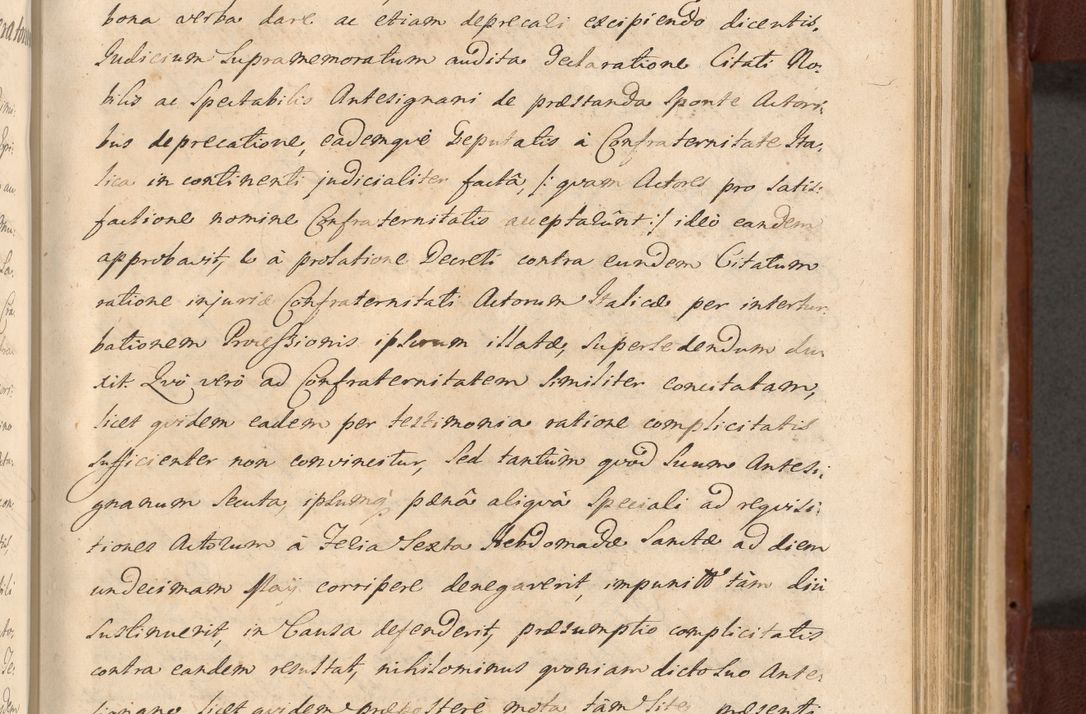 bona verba dare ac etiam deprecari excipiendo dicentis,
Judicium Supramemoratum audita Declaratione Citati No:
bilis ac Spectabilis Antesignani de præstanda sponte Actori:
bus deprecatione, eademque Deputatis à Confraternitate Ita,
lica in continenti judicialiter factâ, /: quam Actores pro satis:
factione nomine Confraternitatis acceptarûnt :/ ideò eandem
approbavit, & à prolatione Decreti contra eundem Citatum
ratione injuriæ Confraternitati Actorum Italicæ per intertur:
bationem Processionis ipsorum illatæ, supersedendum du:
xit Quò verò ad Confraternitatem similiter concitatam,
licet quidem eadem per testimonia ratione complicitatis
sufficienter non convincitur, sed tantùm quòd suum Antesi:
gnanum secuta, ipsumq; pænâ aliquâ speciali ad requisi:
tiones Actorum à Feria Sexta Hebdomadæ Sanctæ ad diem
undecimam Maij corripere denegaverit, tàm diù
sustinuerit, in Causa defenderit, præsumptio complicitatis
contra eandem resultat, nihilominus quoniam dicto suo Ante:
signano licet quidem præpostere mota tàm Lite, præsenti